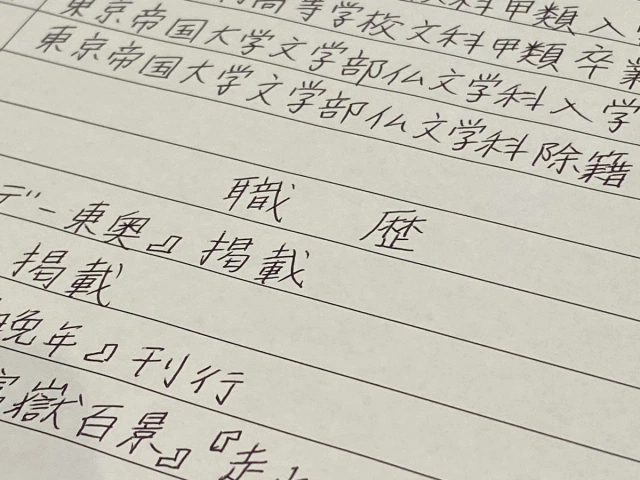 高等学校文科甲類入
高等学校文科甲類卒業
東京帝国大学文学部仏文学科入学
東京帝国大学文学部仏文学科除籍
職 歴
デー東奥』掲載
掲載
晩年』刊行
嶽百景』『走